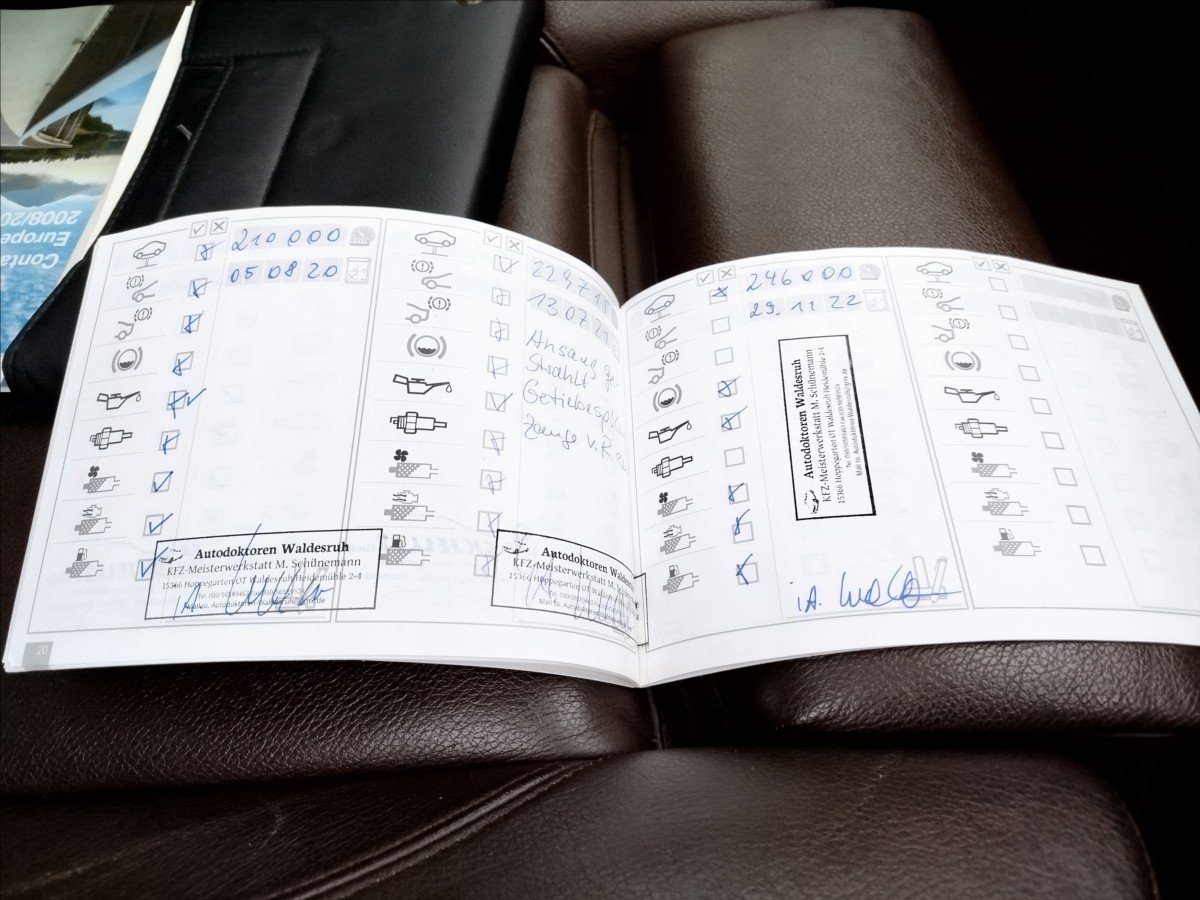 2008/20
Europe
Conta
210 000
05 08 20
Autodoktoren Waldesruh
KFZ-Meisterwerkstatt M. Schünemann
15366 Hoppegarten OT Waldesruh Heidemühle 2-4
20
13 07 21
Ansaug ge-
Strahlt
Getriebespülu
Zange v.R
Autodoktoren Waldesruh
KFZ-Meisterwerkstatt M. S
15366 Hoppegarten OT Waldesruh
246000
29. 11 22
Autodoktoren Waldesruh
KFZ-Meisterwerkstatt M. Schünemann
15366 Hoppegarten OT Waldesruh Heidemühle 2-4
i.A.